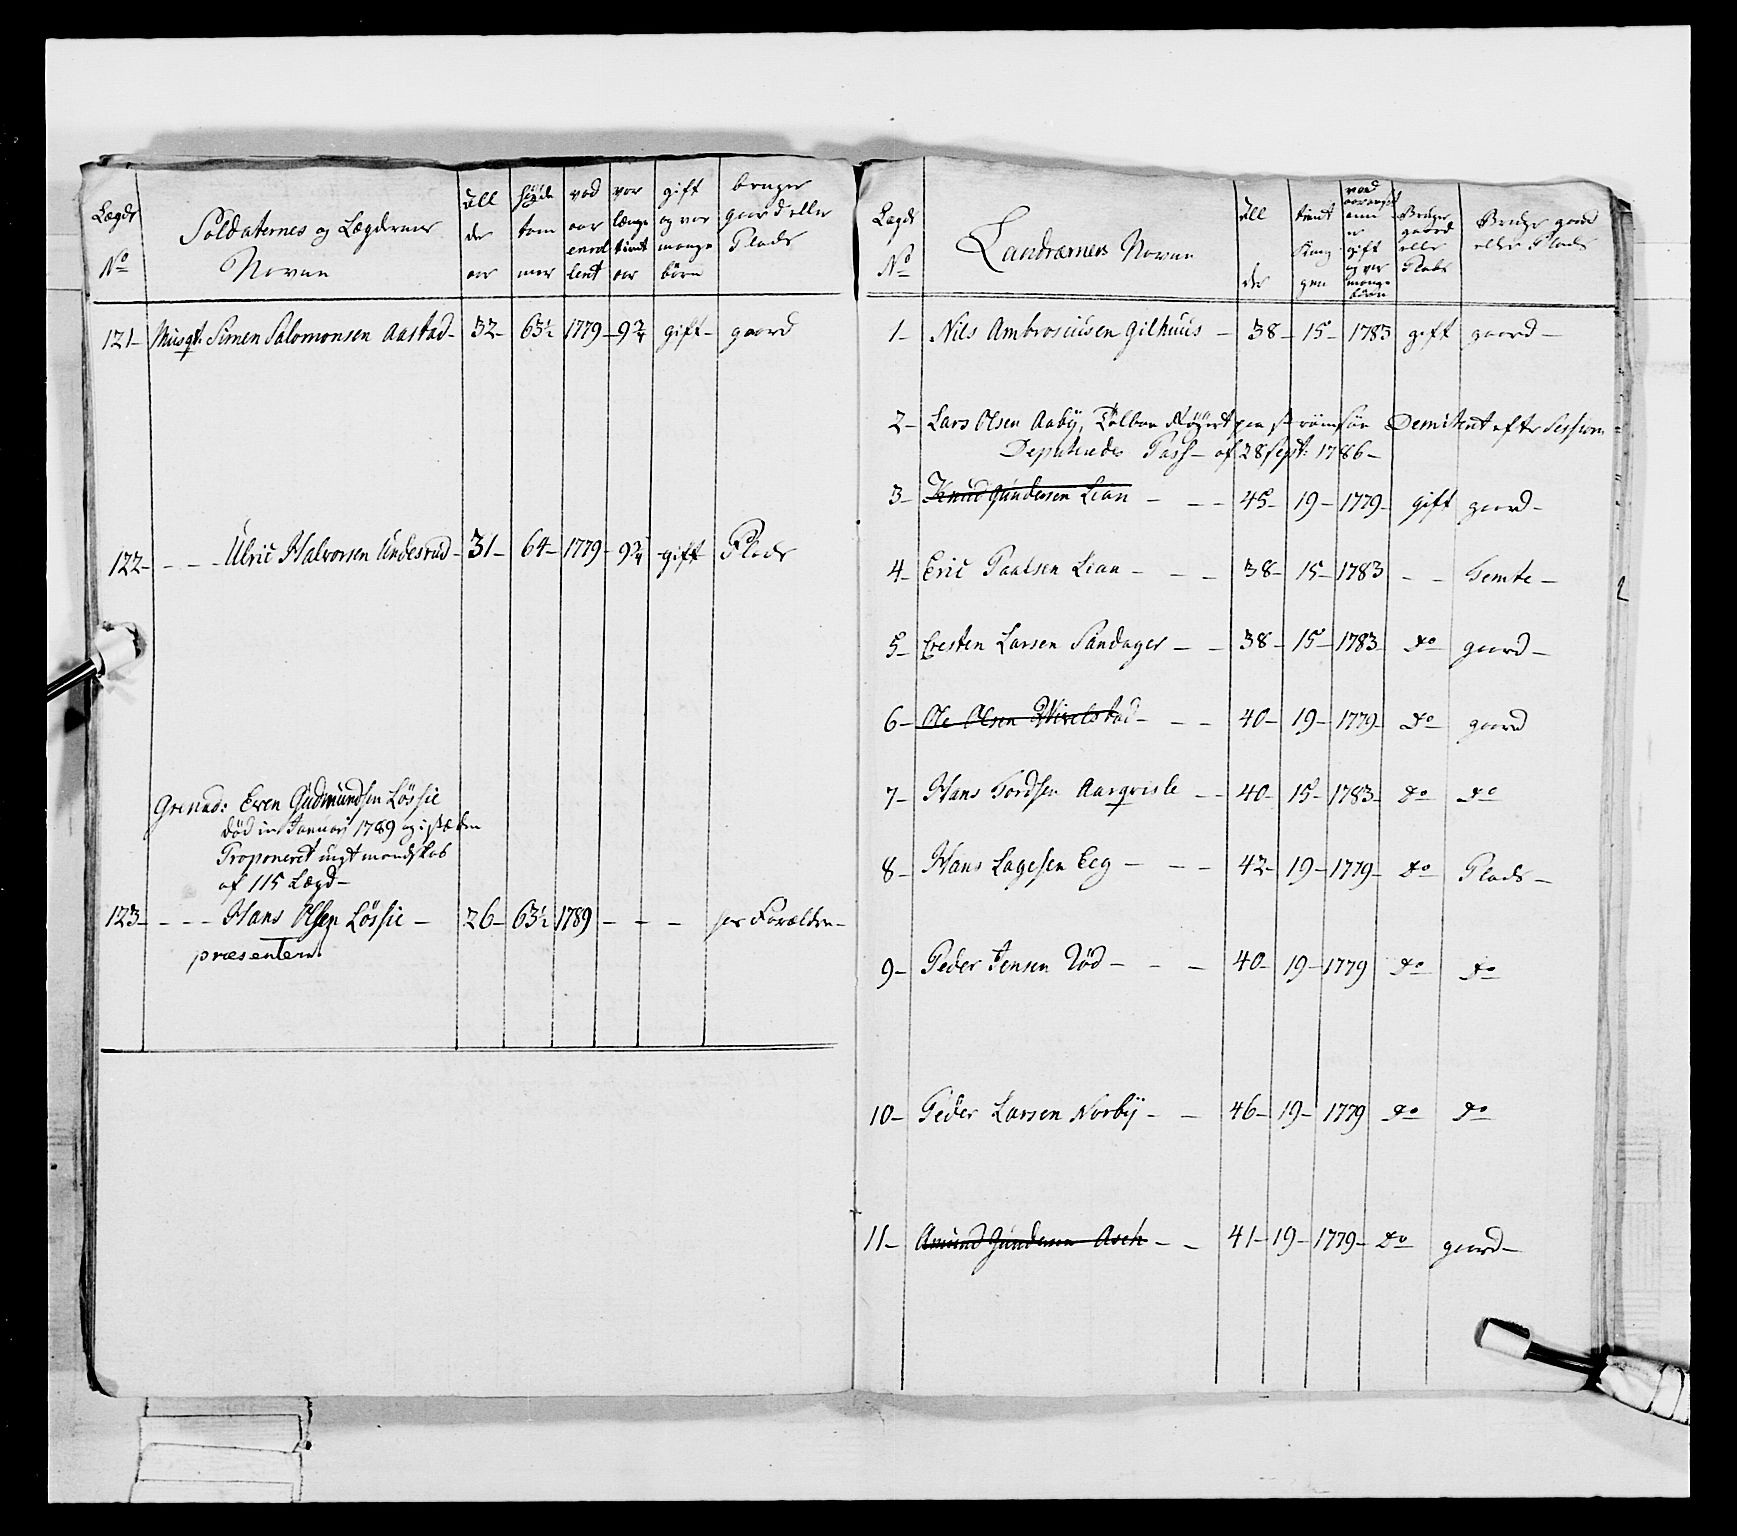 Lægds No
Soldaternes og Lægdernes Navne
All der aar
Høyde tommer
vad aar enrollert
vor længe tient aar
gift og vor mange børn
bruger gaard eller Plads
121 Musqt: Simen Salomonsen Aastad 32 63½ 1779 9¾ gift gaard
122 Ulric Halvorsen Undesrud 31 64 1779 9¾ gift Plads
Grenad: Even Gudmundsen Løssie
død in Januari 1789 og i stæden
Proponeret ungt mandskab
af 115 Lægd
123 Hans Olsen Løssie 26 63½ 1789 - - - hos Forældre
præsentere
Lægds No
Landværnets Navne
All der
tient Kongen
gift og vor mange børn
Bruger gaard eller Plads
Bruger gaard eller Plads
1 Nils Ambrosiusen Gilhuus 38 15 1783 gift gaard
2 Lars Olsen Aaby, paa Demitteret efter Sessions
Deputerede Pass af 28 Sept: 1786
3 Knud Gundersen Lian 45 19 1779 gift gaard
4 Eric Paulsen Lian 38 15 1783 - - Temte
5 Cresten Larsen Sandager 38 15 1783 do gaard
6 Ole Olsen 40 19 1779 do gaard
7 Hans Tordsen Aarqvisle 40 15 1783 do do
8 Hans Lagesen Eeg 42 19 1779 do Plads
9 Peder Jensen Rød 40 19 1779 do do
10 Peder Larsen Norby 46 19 1779 do do
11 Amund Gundersen Asch 41 19 1779 do gaard